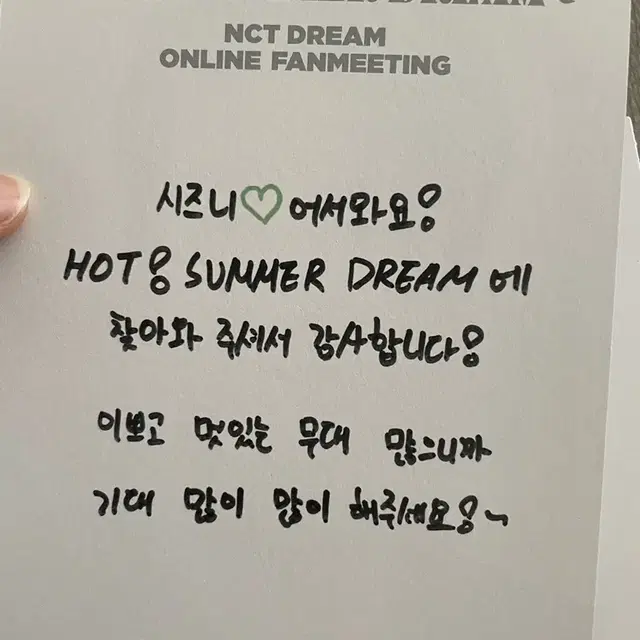 NCT DREAM
ONLINE FANMEETING
시즈니♡어서와요!
HOT! SUMMER DREAM 에
찾아와 주셔서 감사합니다!
이쁘고 멋있는 무대 많으니까
기대 많이 많이 해주세요!~